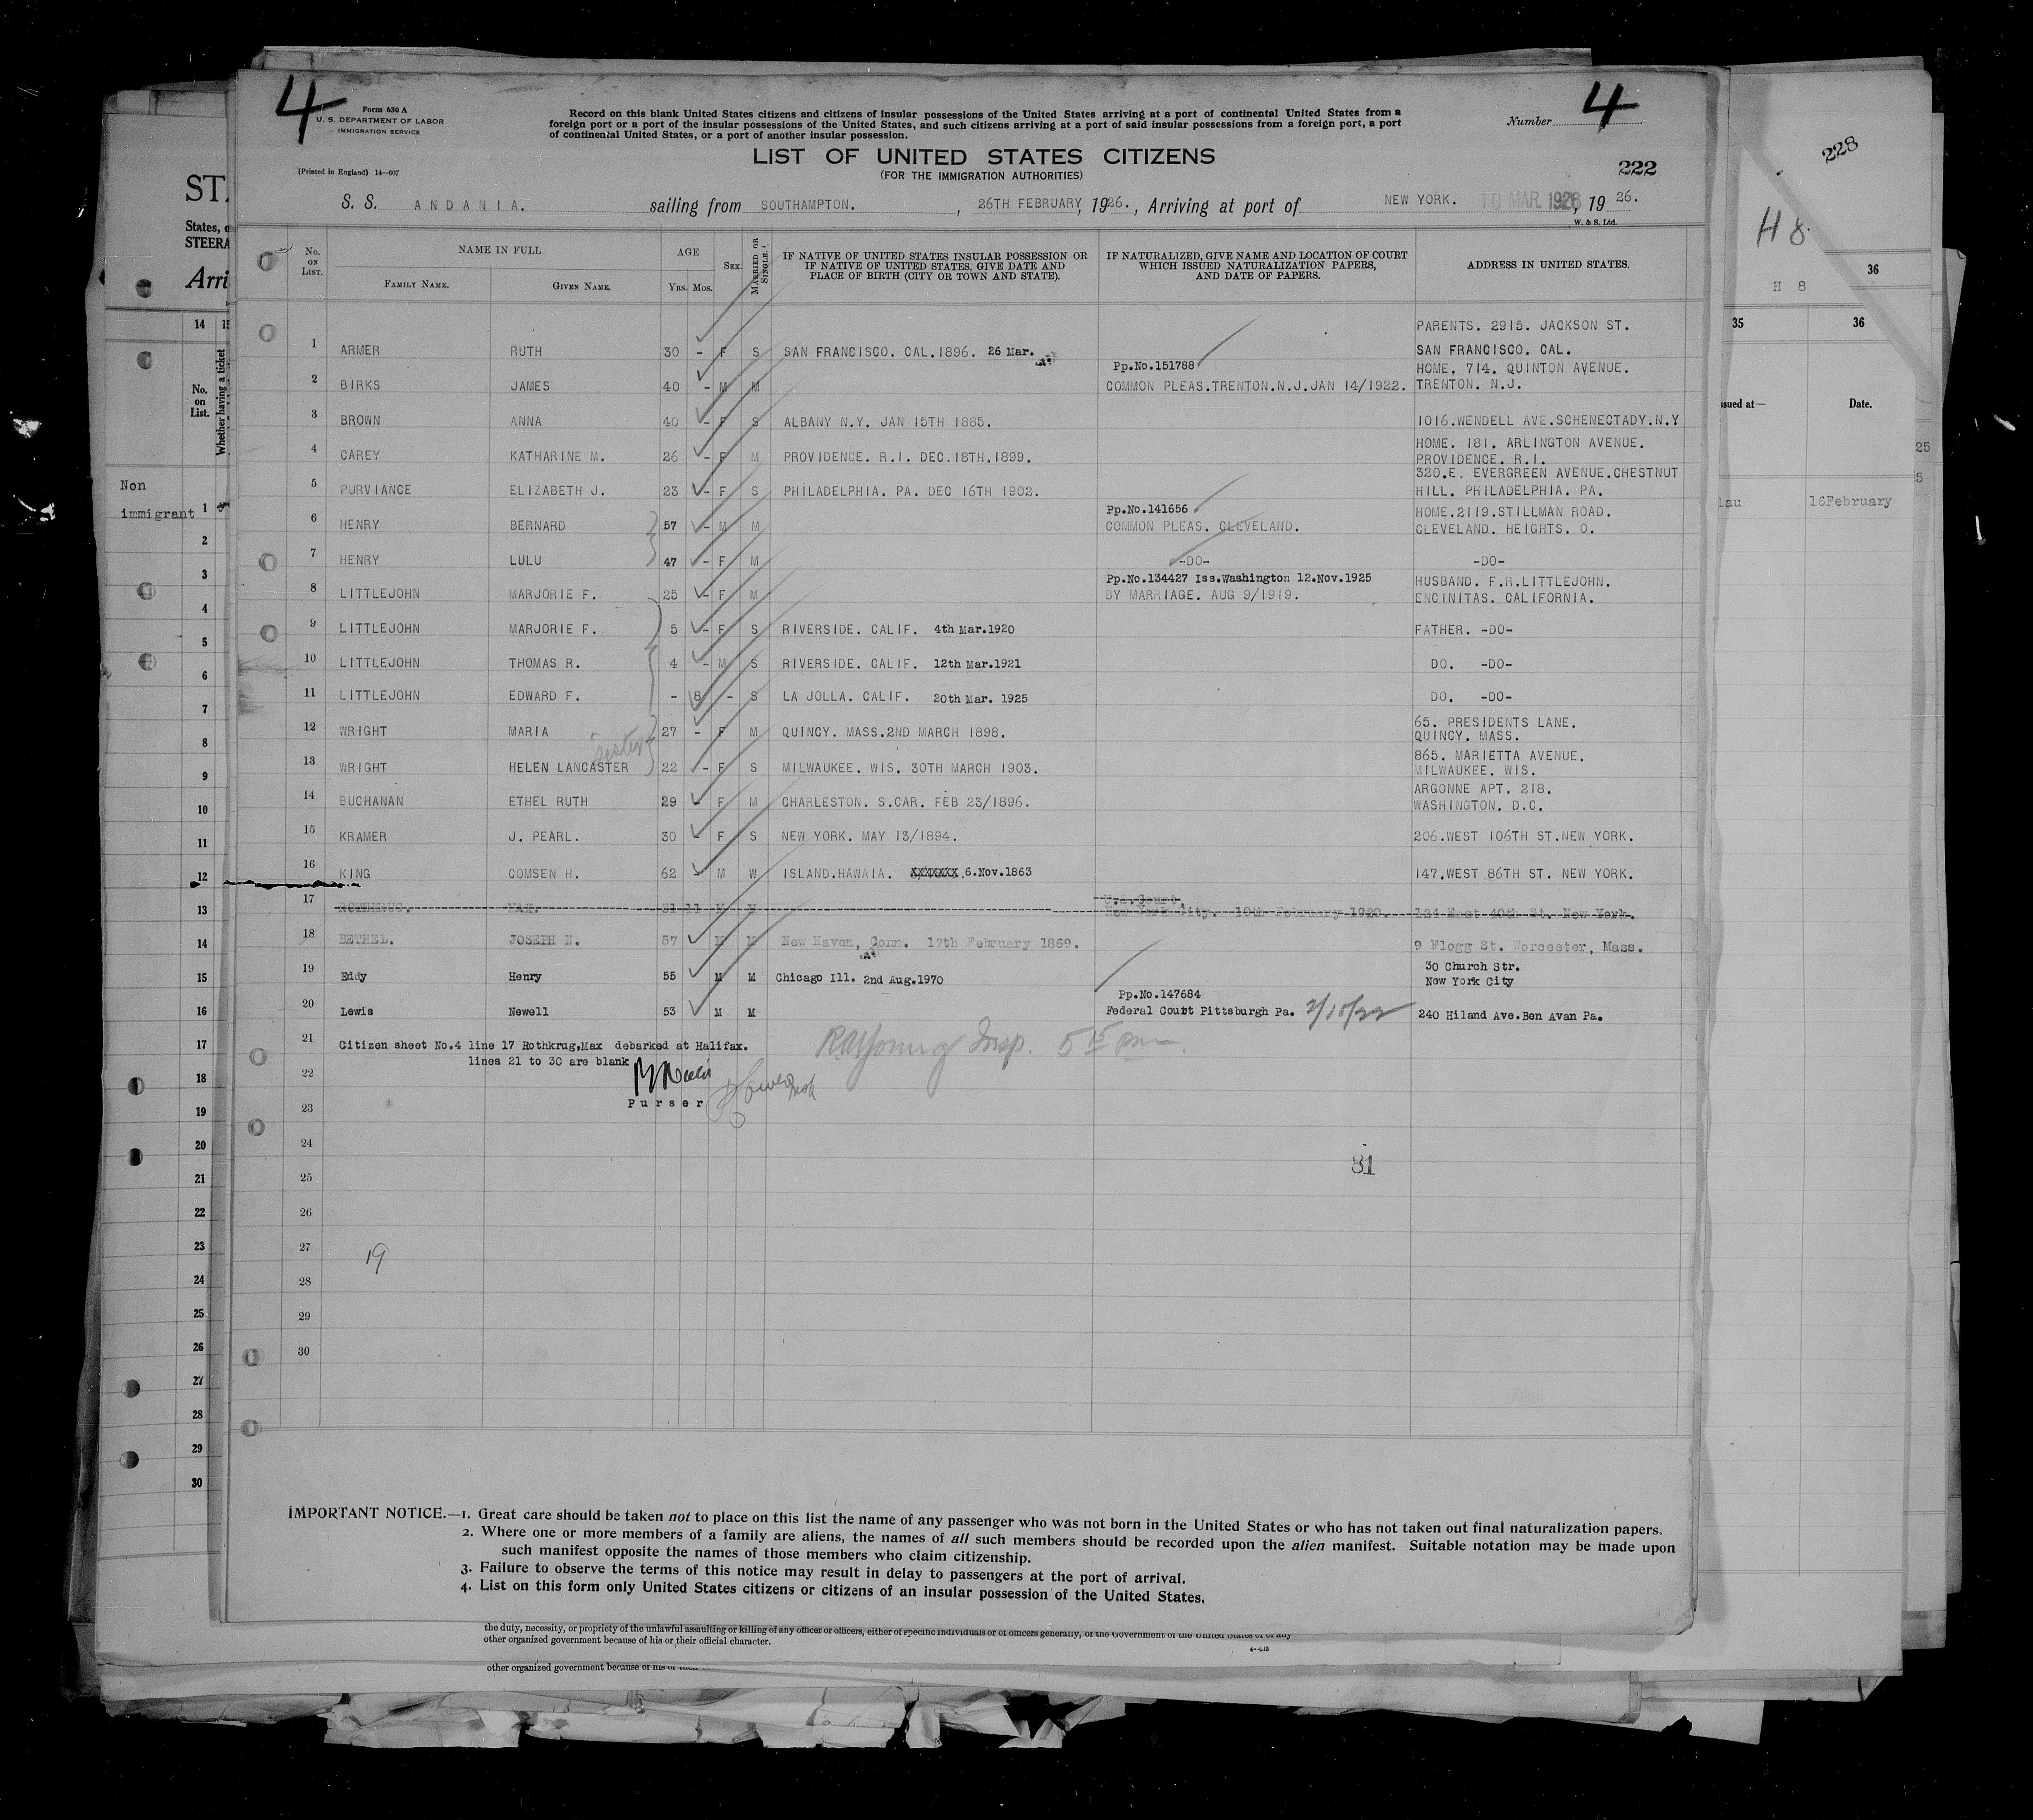 4
Form 630 A
U. S. DEPARTMENT OF LABOR
IMMIGRATION SERVICE
(Printed in England) 14—607
Record on this blank United States citizens and citizens of insular possessions of the United States arriving at a port of continental United States from a
foreign port or a port of the insular possessions of the United States, and such citizens arriving at a port of said insular possessions from a foreign port, a port
of continental United States, or a port of another insular possession.
Number 4
LIST OF UNITED STATES CITIZENS
(FOR THE IMMIGRATION AUTHORITIES)
222
228
S. S. ANDANIA. sailing from SOUTHAMPTON. , 26TH FEBRUARY, 1926. , Arriving at port of NEW YORK. 10 MAR. 1926, 1926.
W. & S. Ltd.
No. on List.
NAME IN FULL.
Family Name.
Given Name.
AGE
Yrs. Mos.
Sex.
Married or Single.
IF NATIVE OF UNITED STATES INSULAR POSSESSION OR
IF NATIVE OF UNITED STATES, GIVE DATE AND
PLACE OF BIRTH (CITY OR TOWN AND STATE).
IF NATURALIZED, GIVE NAME AND LOCATION OF COURT
WHICH ISSUED NATURALIZATION PAPERS,
AND DATE OF PAPERS.
ADDRESS IN UNITED STATES.
PARENTS. 2915. JACKSON ST.
1 ARMER RUTH 30 - F S SAN FRANCISCO. CAL.1896. 26 Mar. SAN FRANCISCO. CAL.
Pp.No.151788 HOME. 714. QUINTON AVENUE.
2 BIRKS JAMES 40 - M M COMMON PLEAS.TRENTON.N.J.JAN 14/1922. TRENTON. N.J.
3 BROWN ANNA 40 - F S ALBANY N.Y. JAN 15TH 1885. 1016.WENDELL AVE.SCHENECTADY.N.Y
HOME. 181. ARLINGTON AVENUE.
4 CAREY KATHARINE M. 26 - F M PROVIDENCE. R.I. DEC.18TH.1899. PROVIDENCE. R.I.
320.E. EVERGREEN AVENUE.CHESTNUT
5 PURVIANCE ELIZABETH J. 23 - F S PHILADELPHIA. PA. DEC 16TH 1902. HILL. PHILADELPHIA. PA.
Pp.No.141656 HOME.2119.STILLMAN ROAD.
6 HENRY BERNARD 57 - M M COMMON PLEAS. CLEVELAND. CLEVELAND. HEIGHTS. O.
7 HENRY LULU 47 - F M -DO- -DO-
Pp.No.134427 Iss.Washington 12.Nov.1925 HUSBAND. F.R.LITTLEJOHN.
8 LITTLEJOHN MARJORIE F. 25 - F M BY MARRIAGE. AUG 9/1919. ENCINITAS. CALIFORNIA.
9 LITTLEJOHN MARJORIE F. 5 - F S RIVERSIDE. CALIF. 4th Mar.1920 FATHER. -DO-
10 LITTLEJOHN THOMAS R. 4 - M S RIVERSIDE. CALIF. 12th Mar.1921 DO. -DO-
11 LITTLEJOHN EDWARD F. - 8 - S LA JOLLA. CALIF. 20th Mar. 1925 DO. -DO-
65. PRESIDENTS LANE.
12 WRIGHT MARIA 27 - F M QUINCY. MASS.2ND MARCH 1898. QUINCY. MASS.
sister
865. MARIETTA AVENUE.
13 WRIGHT HELEN LANCASTER 22 - F S MILWAUKEE. WIS. 30TH MARCH 1903. MILWAUKEE. WIS.
ARGONNE APT. 218.
14 BUCHANAN ETHEL RUTH 29 - F M CHARLESTON. S.CAR. FEB 23/1896. WASHINGTON. D.C.
15 KRAMER J. PEARL. 30 - F S NEW YORK. MAY 13/1894. 206.WEST 106TH ST.NEW YORK.
16 KING COMSEN H. 62 M W ISLAND.HAWAIA. XXXXXXX.6.Nov.1863 147.WEST 86TH ST. NEW YORK.
U.S.Court.
17 ROTHKRUG. MAX. 31 11 M M New York City. 10th February 1920. 134 East 40th St. New York.
18 BETHEL. JOSEPH N. 57 M M New Haven, Conn. 17th February 1869. 9 Flogg St. Worcester, Mass.
30 Church Str.
19 Eddy Henry 55 M M Chicago Ill. 2nd Aug.1970 New York City
Pp.No.147684
20 Lewis Newell 53 M M Federal Court Pittsburgh Pa. 2/10/22 240 Hiland Ave.Ben Avan Pa.
21 Citizen sheet No.4 line 17 Rothkrug,Max debarked at Halifax.
lines 21 to 30 are blank
Insp. 5 15 pm
22
Purser
23
24
81
25
26
27
19
28
29
30
IMPORTANT NOTICE.—1. Great care should be taken not to place on this list the name of any passenger who was not born in the United States or who has not taken out final naturalization papers.
2. Where one or more members of a family are aliens, the names of all such members should be recorded upon the alien manifest. Suitable notation may be made upon
such manifest opposite the names of those members who claim citizenship.
3. Failure to observe the terms of this notice may result in delay to passengers at the port of arrival.
4. List on this form only United States citizens or citizens of an insular possession of the United States.
the duty, necessity, or propriety of the unlawful assaulting or killing of any officer or officers, either of specific individuals or of officers generally, of the Government of the United States or of any
other organized government because of his or their official character.
other organized government because of his or their
STA
States, o
STEERA
Arri
14 15
No. on List.
Whether having a ticket
Non
immigrant
1
2
3
4
5
6
7
8
9
10
11
12
13
14
15
16
17
18
19
20
21
22
23
24
25
26
27
28
29
30
H 8
36
H 8
35 36
ssued at— Date.
25
5
lau 16February